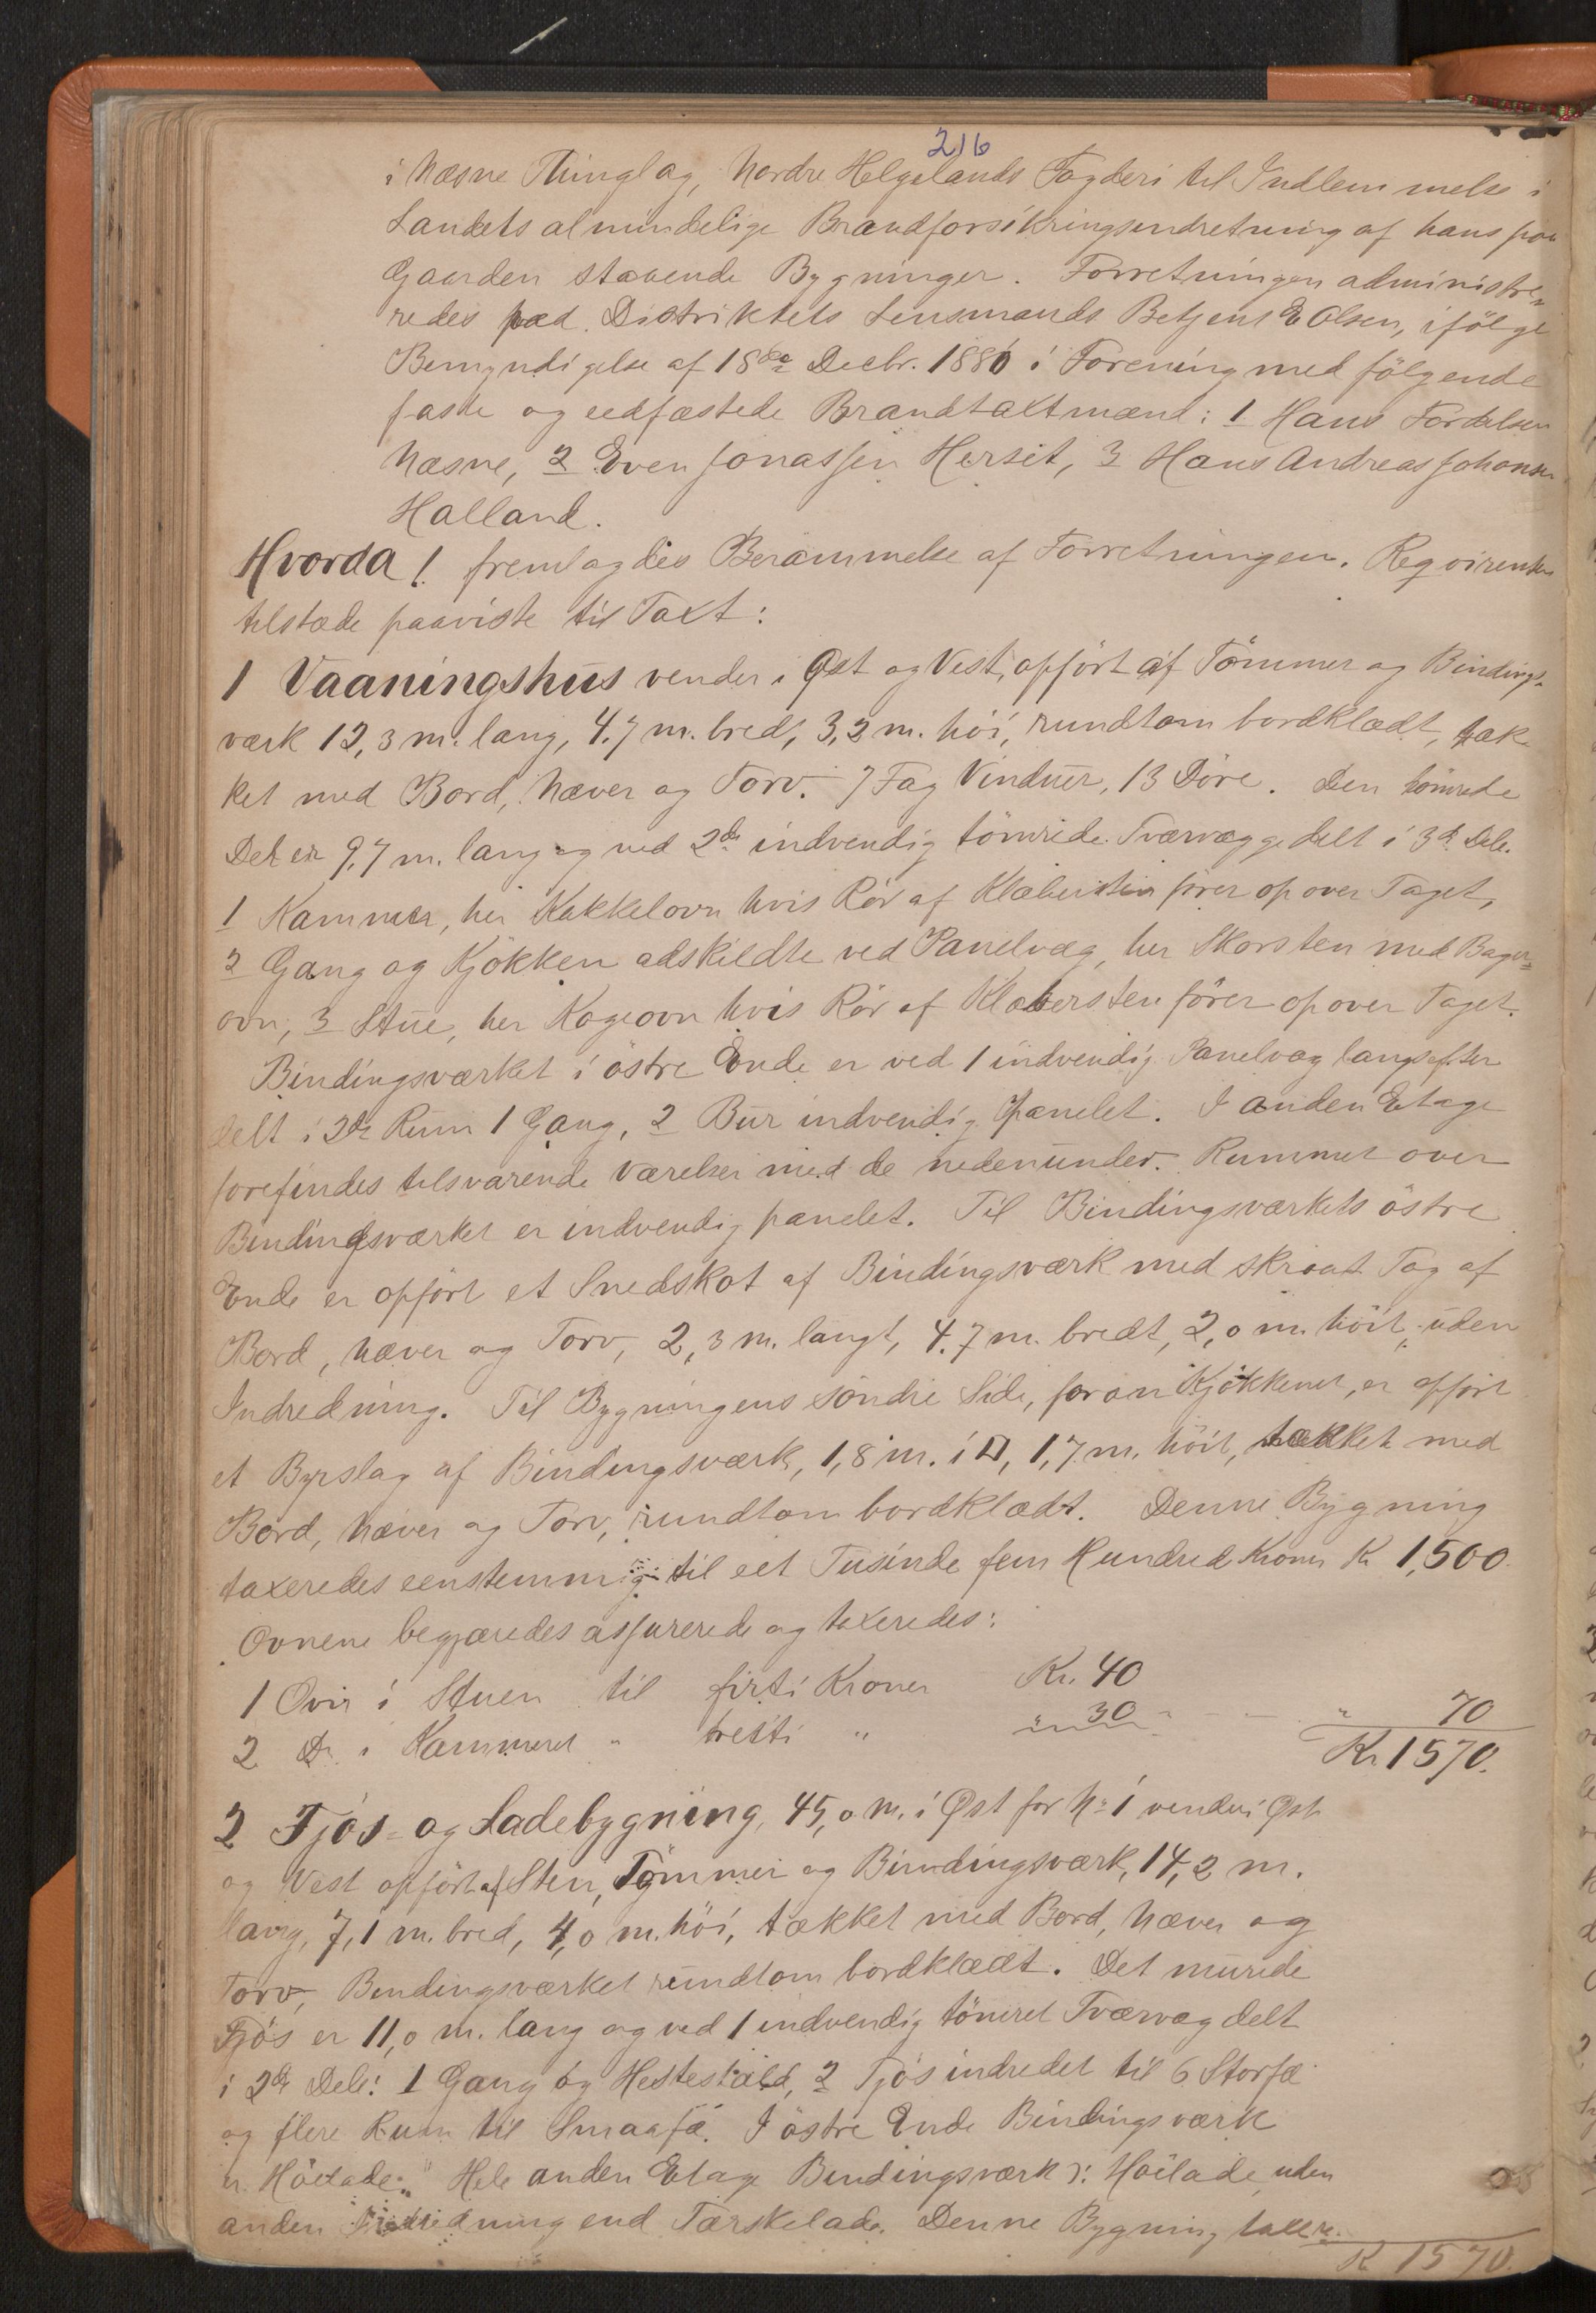 216
i Næsne Thinglag, Nordre Helgelands Fogderi til Indlemmelse i
Landets almindelige Brandforsikringsindretning af hans paa
Gaarden staaende Bygninger. Forretningen administre-
redes ved Distriktets Lensmands Betjent E Olsen, ifölge
Bemyndigelse af 18de Decbr. 1886 i Forening med fölgende
faste og eedfæstede Brandtaxtmænd: 1 Hans Tordelsen
Næsne, 2 Even Jonassen Herset, 3 Hans Andreas Johansen
Halland.
Hvorda !. fremlagdes Berammelse af Forretningen. Reqvirenten
tilstæde paaviste til Taxt:
1 Vaaningshus vender i Øst og Vest, opfört af Tömmer og Bindings-
værk 12,3 m. lang, 4.7 m. bred, 3,2 m. höi, rundtom bordklædt, tæk-
ket med Bord, Næver og Torv. 7 Fag Vinduer, 13 Döre. Den tömrede
Del er 9,7 m. lang og ved 2de indvendig tömrede Tværvægge delt i 3de Dele.
1 Kammer, her Kakkelovn hvis Rör af Klæbersten förer op over Taget,
2 Gang og Kjökken adskildte ved Panelvæg, her Skorsten med Bager-
ovn, 3 Stue, her Kogeovn hvis Rör af Klæbersten förer op over Taget.
Bindingsværket i östre Ende er ved 1 indvendig Panelvæg langsefter
delt i 2de Rum 1 Gang, 2 Bur indvendig panelet. I anden Etage
forefindes tilsvarende Værelser med de nedenunder. Rummet over
Bindingsværket er indvendig panelet. Til Bindingsværkets östre
Ende er opfört et Snedskot af Bindingsværk med skraat Tag af
Bord, Næver og Torv, 2,3 m. langt, 4.7 m. bredt, 2,0 m. höit, uden
Indredning. Til Bygningens söndre Side, foran Kjökkenet, er opfört
et Byrslag af Bindingsværk, 1,8 m. i □, 1,7 m. höit, tækket med
Bord, Næver og Torv, rundtom bordklædt. Denne Bygning
taxeredes eenstemmig til eet Tusinde fem Hundred Kroner Kr 1,500.
Ovnene begjæredes assurerede og taxeredes:
1 Ovn i Stuen til firti Kroner Kr. 40
2 Do i Kammeret " treti " " 30 " 70
Kr 1570.
2 Fjös- og Ladebygning, 45,0 m. i Øst for No 1 vender i Øst
og Vest opfört af Sten, Tömmer og Bindingsværk, 14,2 m.
lang, 7,1 m. bred, 4,0 m. höi, tækket med Bord, Næver og
Torv, Bindingsværket rundtom bordklædt. Det murede
Fjös er 11,0 m. lang og ved 1 indvendig tömret Tværvæg delt
i 2de Dele: 1 Gang og Hestestald, 2 Fjös indredet til 6 Storfæ
og flere Rum til Smaafæ. I östre Ende Bindingsværk
er Hölade. Hele anden Etage Bindingsværk ): Hölade, uden
anden Indredning end Tærskelade. Denne Bygning taxere-
Kr 1570.